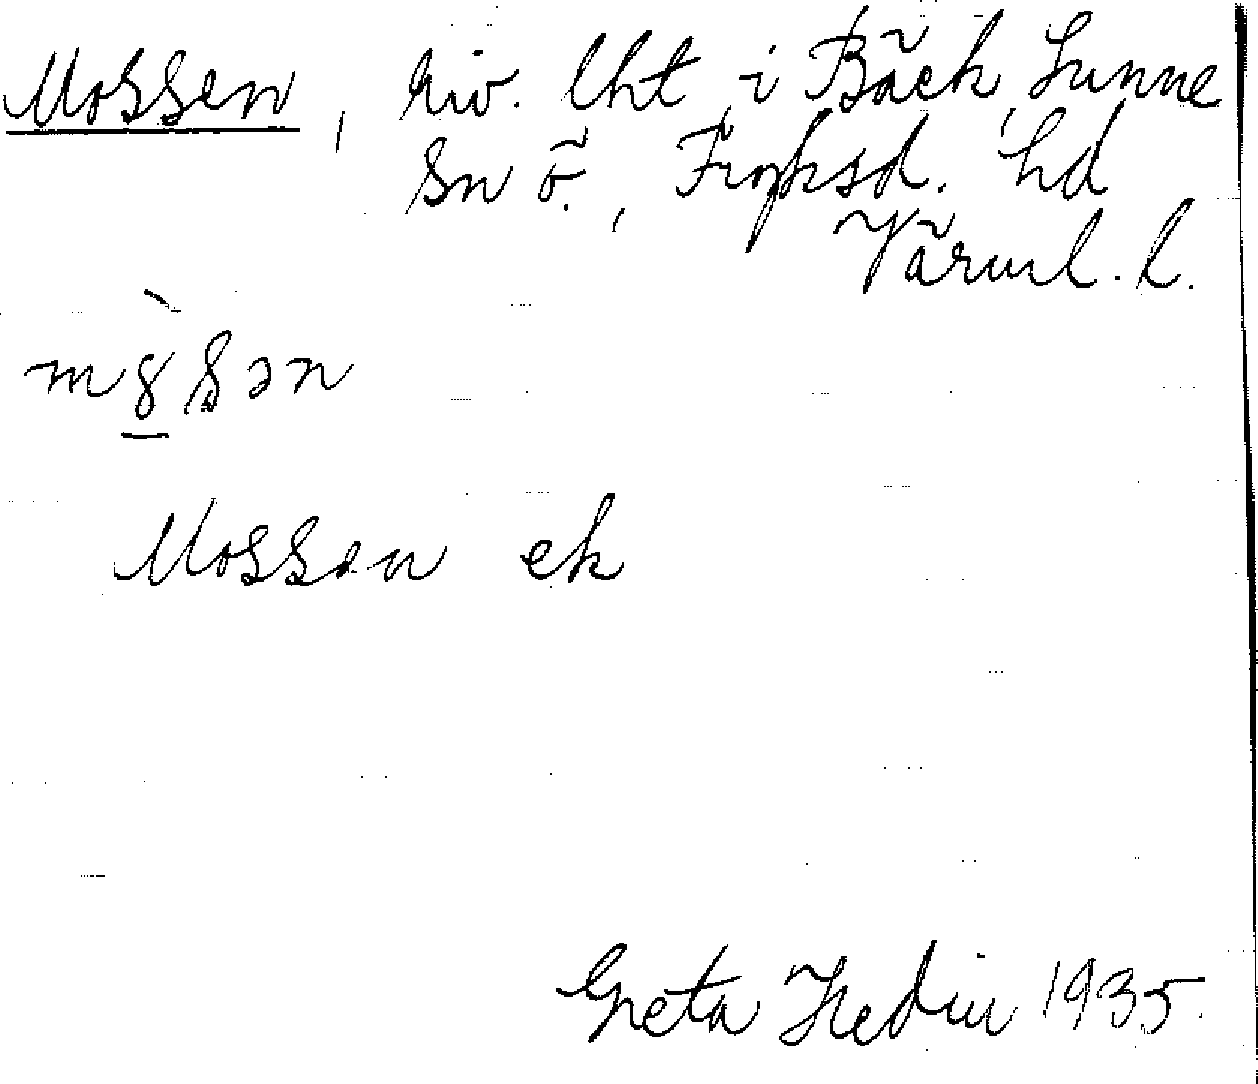 Mossen, riv. lht i Bäck, Sunne
sn ö., Fryksd. hd
Värml. l.
mȣ̀sən
Mossen ek
Greta Hedin 1935.